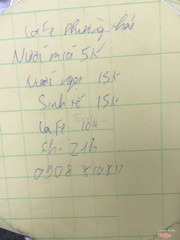 Cafe Phương Thái
Nước mía 5K
Nước ngọt 15K
Sinh tố 15K
Cafe 10K
5h - 21h
0908